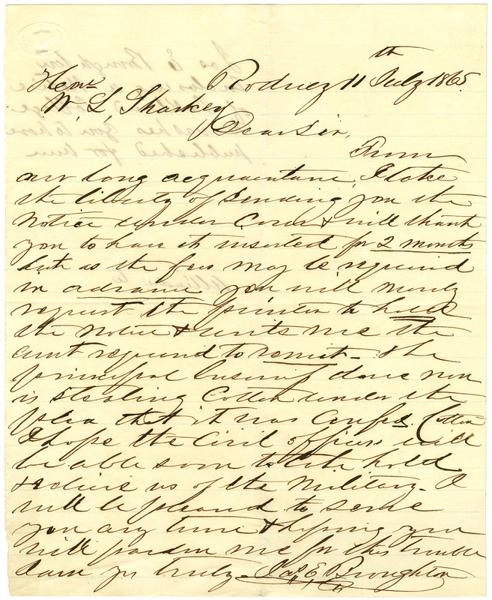 Rodney 11th July 1865
Honl
W. L. Sharkey
Dear Sir,
From
our long acquaintance, I take
the liberty of sending you the
Notice under Cover & will thank
you to have it inserted for 2 months
but as the fees may be required
in advance you will merely
request the printer to hold
the Notice & write me the
amt required to remit. The
principal business done now
is Stealing Cotton under the
plea that it was Confed. Cotton
I hope the Civil officers will
be able soon to take hold
& relieve us of the Military. I
will be pleased to serve
you any time & hoping you
will pardon me for this trouble
I am yrs truly Jas. E. Broughton